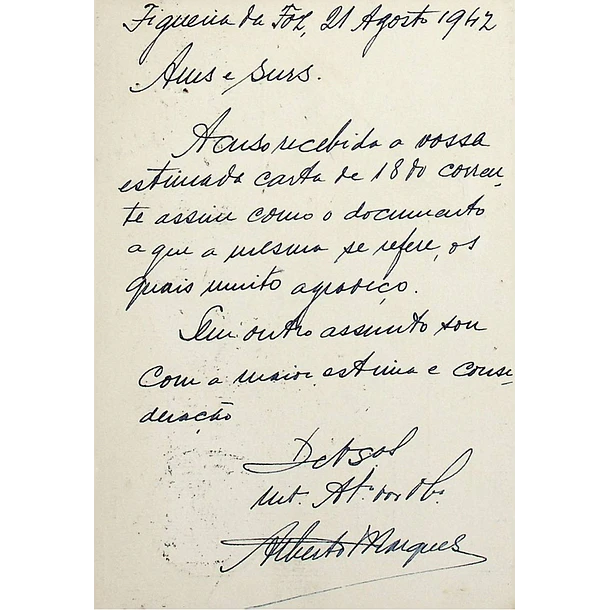 Figueira da Foz, 21 Agosto 1942
Ams e Snrs.
Acuso recebida a vossa
estimada carta de 18 do corren-
te assim como o documento
a que a mesma se refere, os
quais muito agradeço.
Sem outro assunto sou
com a maior estima e consi-
deração
Mt. At. Obr.
Alberto Marques